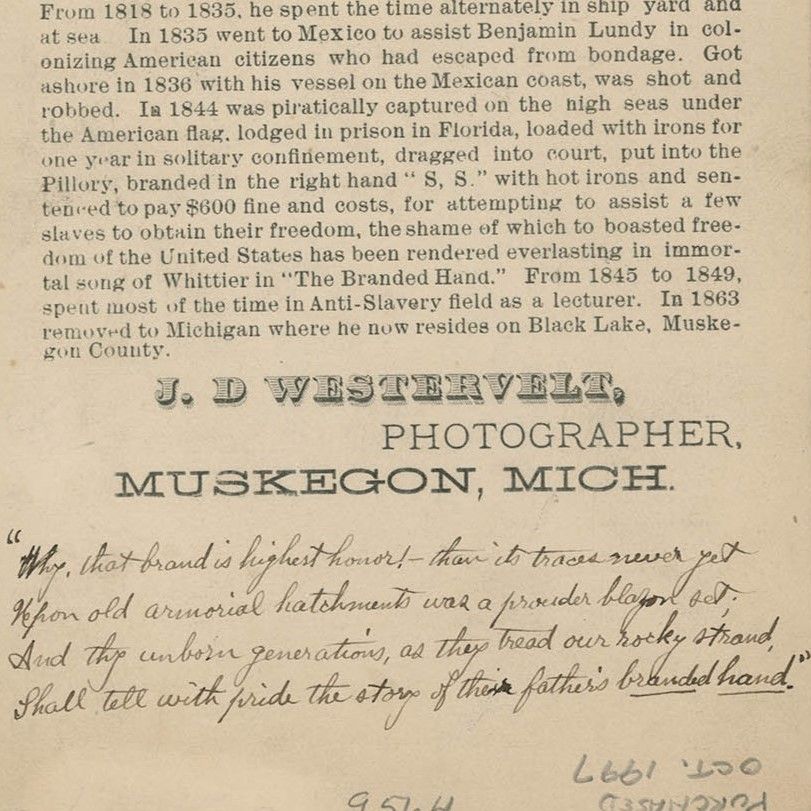 From 1818 to 1835, he spent the time alternately in ship yard and
at sea In 1835 went to Mexico to assist Benjamin Lundy in col-
onizing American citizens who had escaped from bondage. Got
ashore in 1836 with his vessel on the Mexican coast, was shot and
robbed. In 1844 was piratically captured on the high seas under
the American flag, lodged in prison in Florida, loaded with irons for
one year in solitary confinement, dragged into court, put into the
Pillory, branded in the right hand "S, S." with hot irons and sen-
tenced to pay $600 fine and costs, for attempting to assist a few
slaves to obtain their freedom, the shame of which to boasted free-
dom of the United States has been rendered everlasting in immor-
tal song of Whittier in "The Branded Hand." From 1845 to 1849,
spent most of the time in Anti-Slavery field as a lecturer. In 1863
removed to Michigan where he now resides on Black Lake, Muske-
gon County.
J. D WESTERVELT,
PHOTOGRAPHER,
MUSKEGON, MICH.
"Why, that brand is highest honor! – than its traces never yet
Upon old armorial hatchments was a prouder blazon set;
And thy unborn generations, as they tread our rocky strand,
Shall tell with pride the story of their father's branded hand."
OCT. 1997
PURCHASED